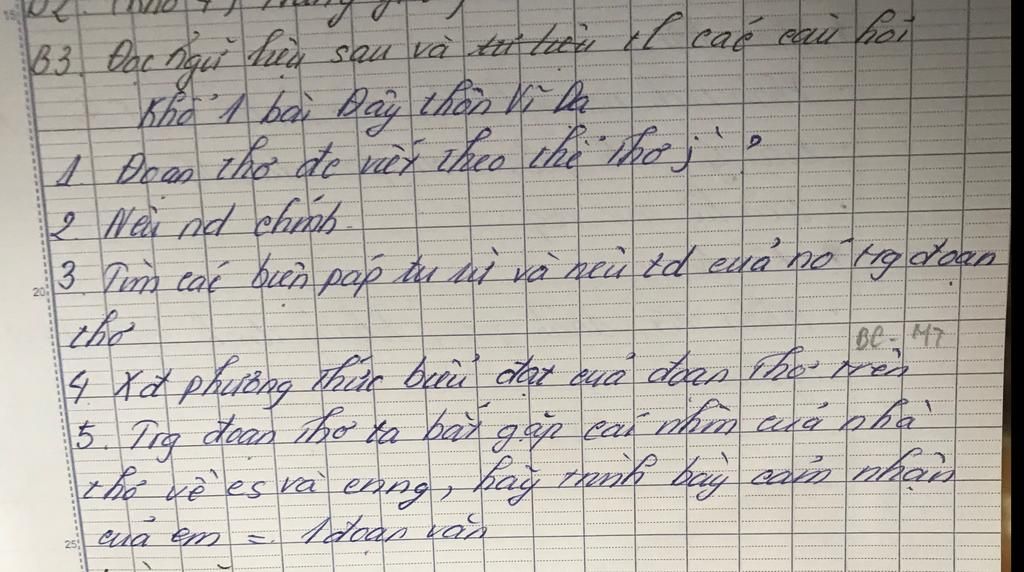 B3. Đọc ngữ liệu sau và trl các câu hỏi
Khổ 1 bài Đây thôn Vĩ Dạ
1. Đoạn thơ đc viết theo thể thơ j` ?
2. Nêu nd chính.
3 Tìm các biện páp tu từ và nêu td của nó trg đoạn
thơ
BC - MT
4 Xđ phương thức biểu đạt của đoạn thơ trên
5. Trg đoạn thơ ta bắt gặp cái nhìn của nhà
thơ về cs và cnng, hãy trình bày cảm nhận
của em = 1 đoạn văn
20
25